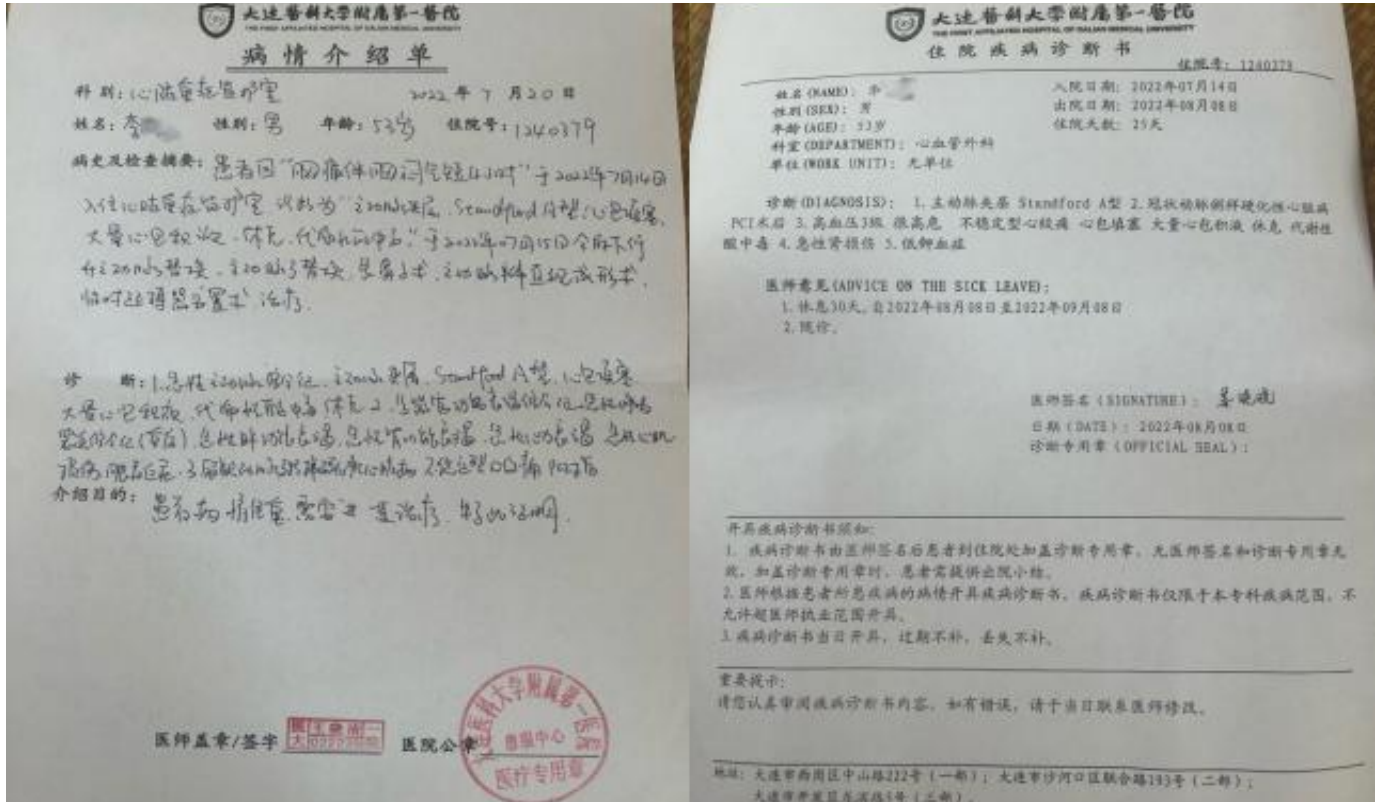 大连医科大学附属第一医院
THE FIRST AFFILIATED HOSPITAL OF DALIAN MEDICAL UNIVERSITY
病情介绍单
科别：心脏重症监护室 2022年7月20日
姓名：李 性别：男 年龄：53岁 住院号：1240379
病史及检查摘要：患者因“胸痛伴胸闷气短4小时”于2022年7月14日
入住心脏重症监护室，诊断为“主动脉夹层，Standford A型，心包填塞，
大量心包积液，休克，代谢性酸中毒”于2022年07月15日全麻下行
替换，主动脉弓替换，象鼻手术，主动脉瓣直视成形术，
临时 置术治疗。
诊断：1.急性主动脉综合征，主动脉夹层，Standford A型，心包填塞
大量心包积液，代谢性酸中毒 休克 2.
急性肝功能衰竭，急性肾功能衰竭，急性心力衰竭
3.冠状动脉粥样硬化性心脏病 不稳定型心绞痛 PCI术后
介绍目的：患者病情危重，需要进一步治疗，特此证明。
医师盖章/签字 医院公章
大连医科大学附属第一医院
医疗专用章
大连医科大学附属第一医院
THE FIRST AFFILIATED HOSPITAL OF DALIAN MEDICAL UNIVERSITY
住院疾病诊断书
住院号：1240379
姓名(NAME)：李 入院日期：2022年07月14日
性别(SEX)：男 出院日期：2022年08月08日
年龄(AGE)：53岁 住院天数：25天
科室(DEPARTMENT)：心血管外科
单位(WORK UNIT)：无单位
诊断(DIAGNOSIS)：1.主动脉夹层 Standford A型 2.冠状动脉粥样硬化性心脏病
PCI术后 3.高血压3级 很高危 不稳定型心绞痛 心包填塞 大量心包积液 休克 代谢性
酸中毒 4.急性肾损伤 5.低钾血症
医师意见(ADVICE ON THE SICK LEAVE)：
1.休息30天，自2022年08月08日至2022年09月08日
2.随诊。
医师签名(SIGNATURE)：
日期(DATE)：2022年08月08日
诊断专用章(OFFICIAL SEAL)：
开具疾病诊断书须知：
1. 疾病诊断书由医师签名后患者到住院处加盖诊断专用章，无医师签名和诊断专用章无
效，加盖诊断专用章时，患者需提供出院小结。
2.医师根据患者所患疾病的病情开具疾病诊断书，疾病诊断书仅限于本专科疾病范围，不
允许超医师执业范围开具。
3.疾病诊断书当日开具，过期不补，丢失不补。
重要提示：
请您认真审阅疾病诊断书内容，如有错误，请于当日联系医师修改。
地址：大连市西岗区中山路222号（一部）；大连市沙河口区联合路193号（二部）；